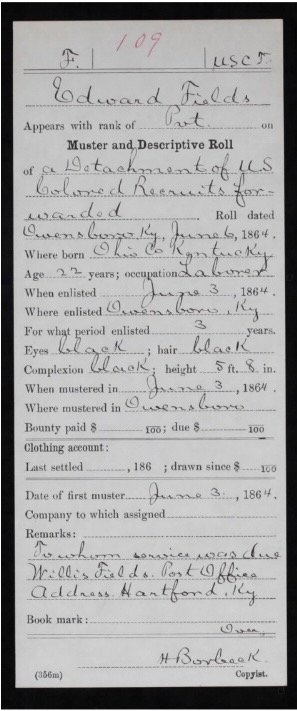 F. 109 U S C T.
Edward Fields
Appears with rank of Pvt on
Muster and Descriptive Roll
of a Detachment of U.S.
Colored Recruits for-
warded. Roll dated
Owensboro Ky, June 6, 1864.
Where born Ohio Co Kentucky
Age 22 years; occupation Laborer
When enlisted June 3, 1864.
Where enlisted Owensboro, Ky
For what period enlisted 3 years.
Eyes black; hair black
Complexion black; height 5 ft. 8 in.
When mustered in June 3, 1864.
Where mustered in Owensboro
Bounty paid $ 100; due $ 100
Clothing account:
Last settled , 186 ; drawn since $ 100
Date of first muster June 3, 1864.
Company to which assigned
Remarks:
To whom service was due
Willis Fields. Post Office
Address Hartford, Ky
Book mark:
Over
H Borbeck
(356m) Copyist.